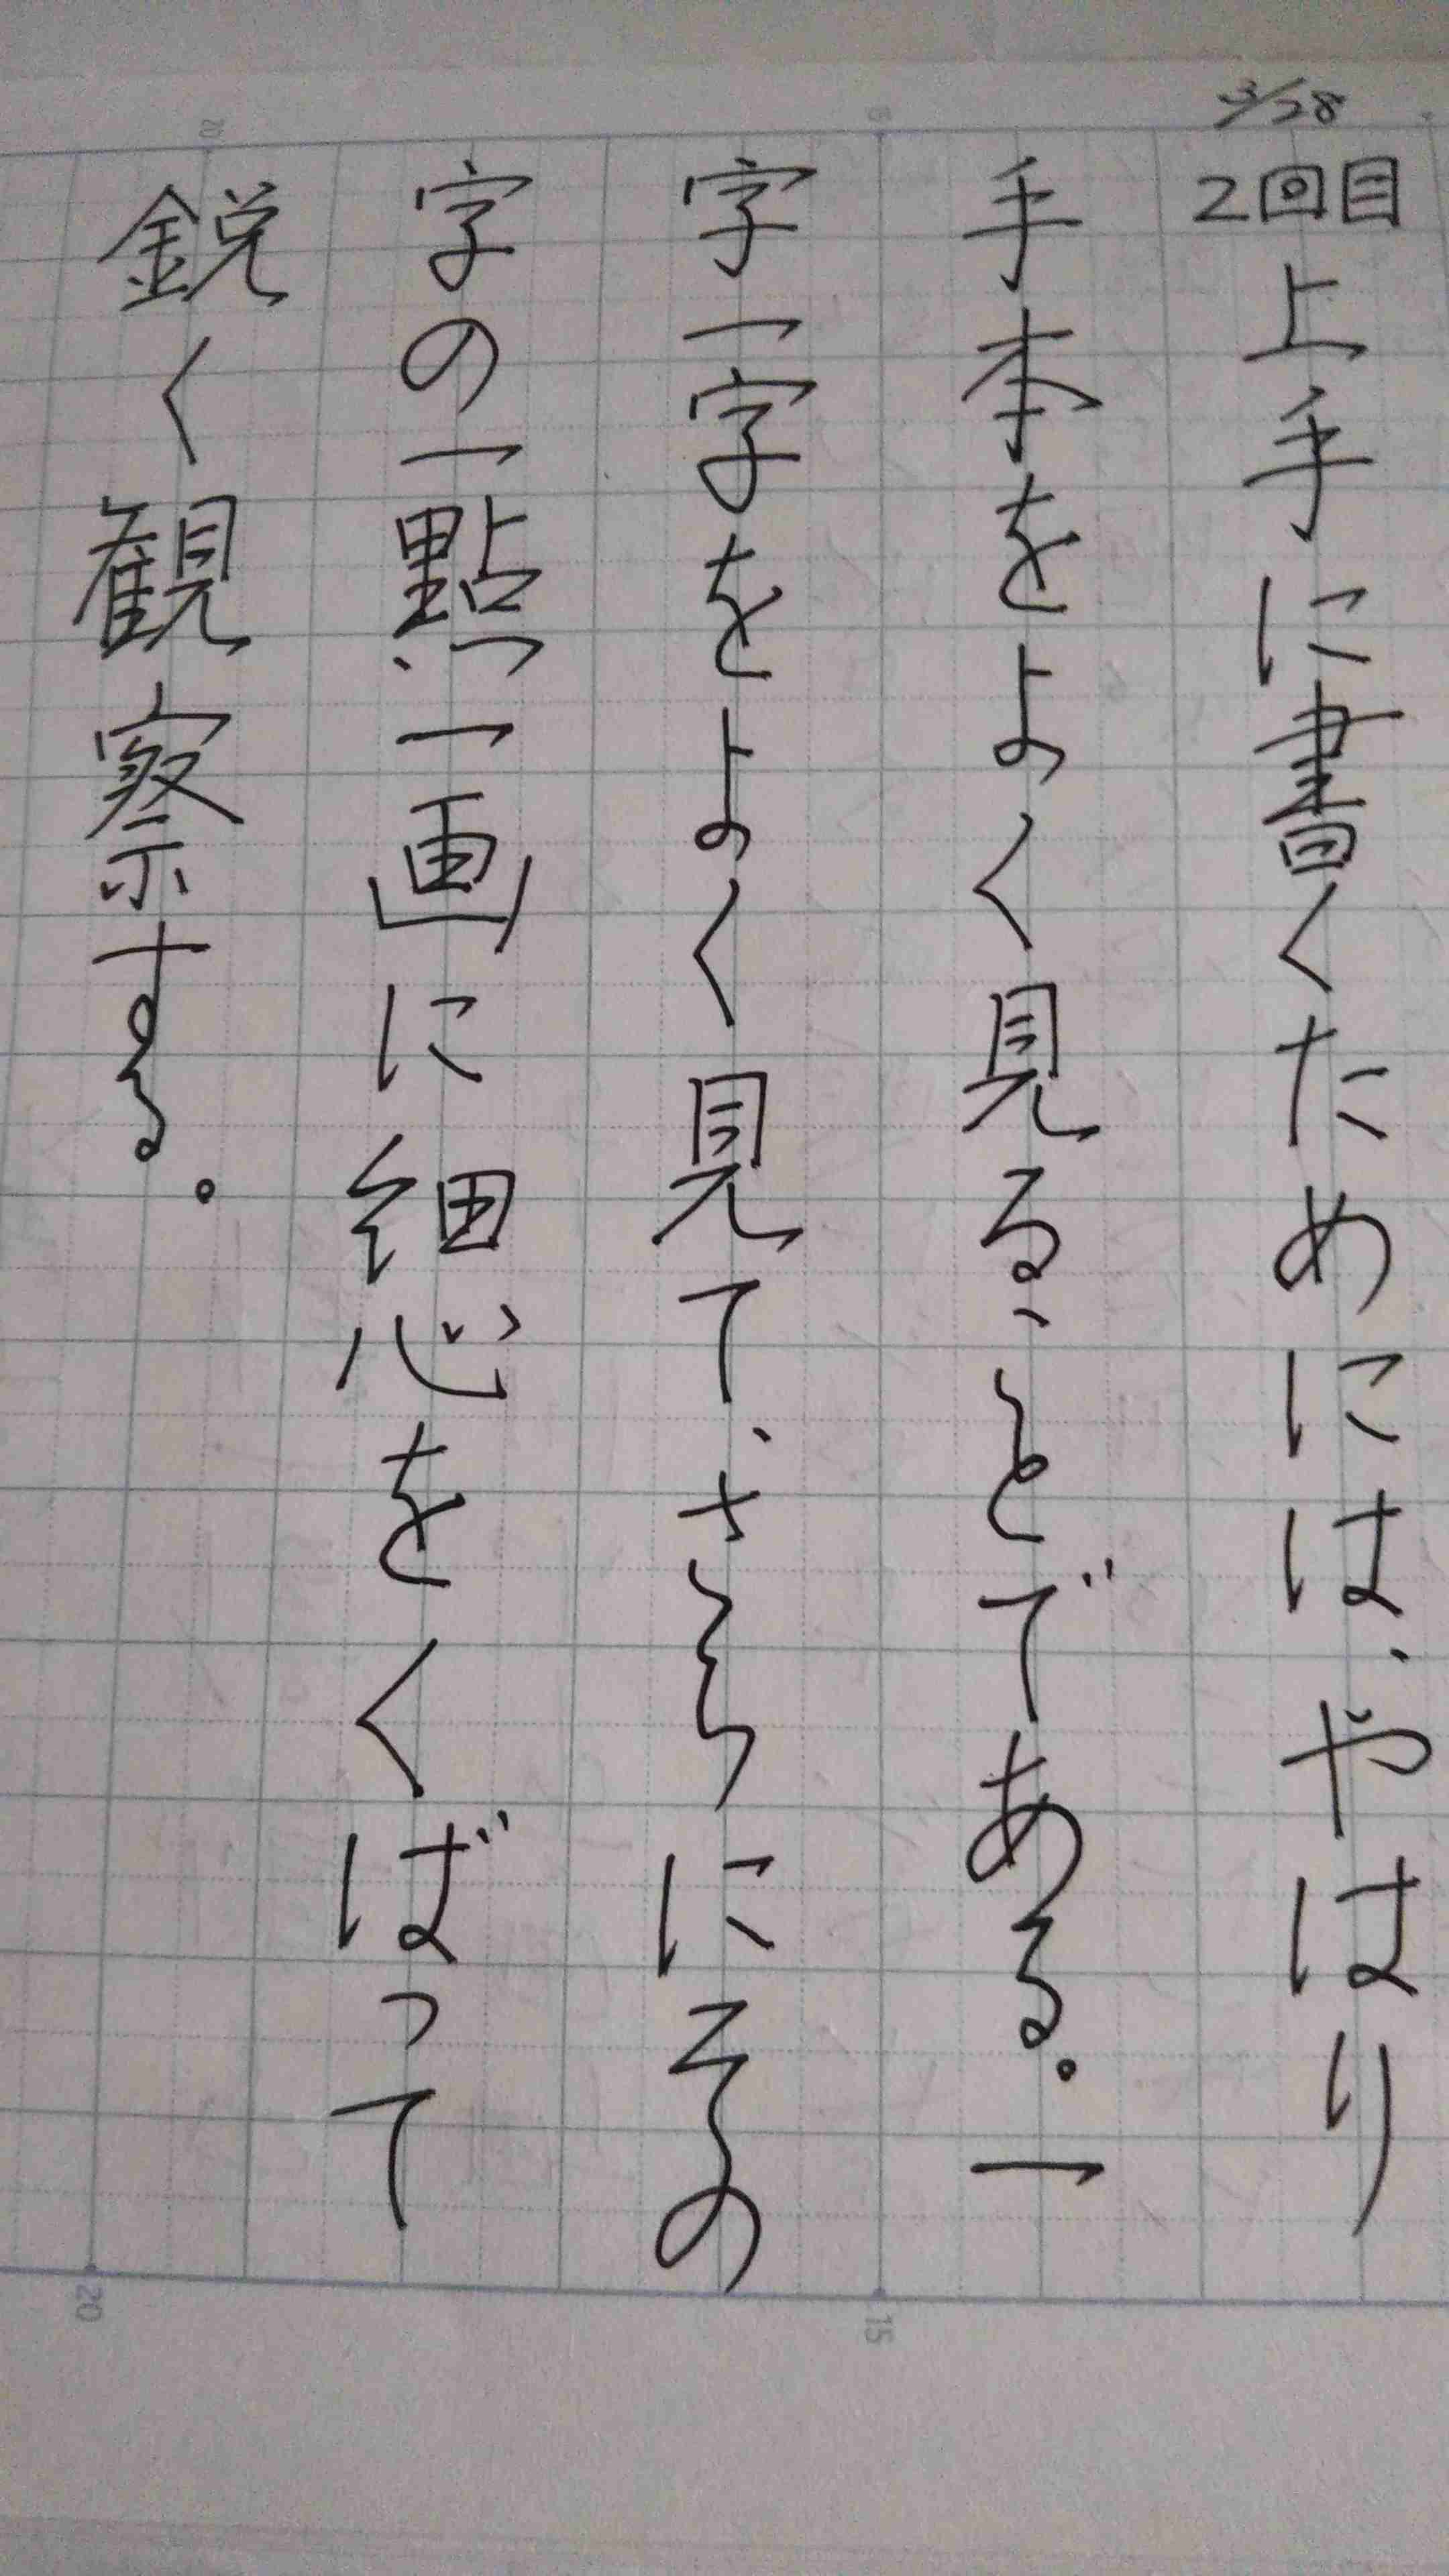 3/28
2回目
上手に書くためには、やはり
手本をよく見る、ことである。一
字一字をよく見て、さらにその
字の一點一画に細心をくばって
鋭く観察する。
20
15
20
15